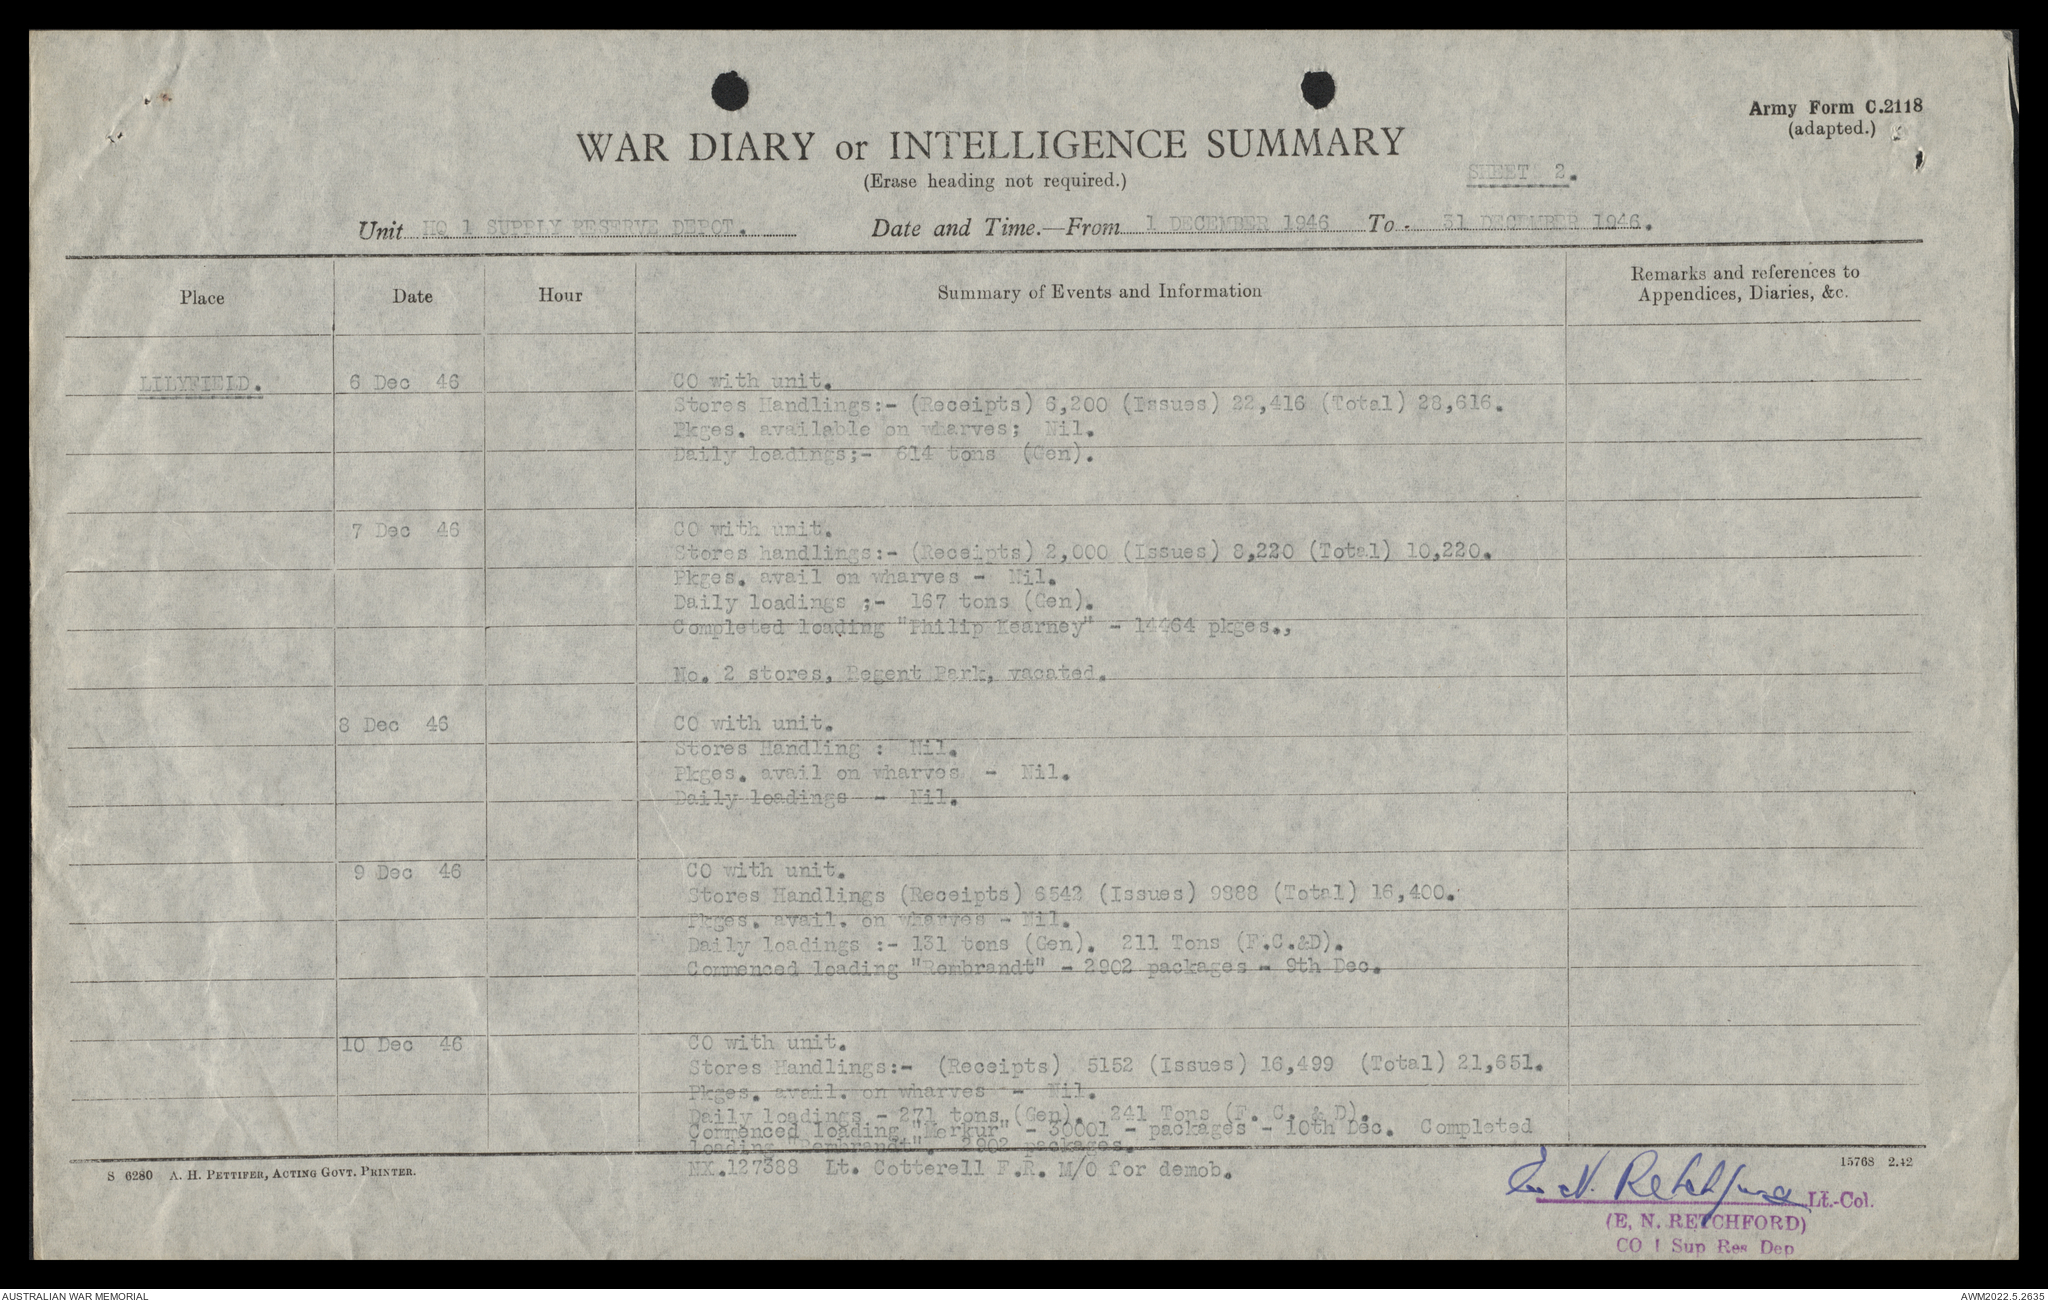 Army Form C.2118
(adapted.)
WAR DIARY or INTELLIGENCE SUMMARY
(Erase heading not required.)
SHEET 2.
Unit HQ 1 SUPPLY RESERVE DEPOT. Date and Time.—From 1 DECEMBER 1946 To. 31 DECEMBER 1946.
Place Date Hour Summary of Events and Information Remarks and references to
Appendices, Diaries, &c.
LILYFIELD. 6 Dec 46 CO with unit.
Stores Handlings:- (Receipts) 6,200 (Issues) 22,416 (Total) 28,616.
Pkges. available on wharves; Nil.
Daily loadings;- 614 tons (Gen).
7 Dec 46 CO with unit.
Stores handlings:- (Receipts) 2,000 (Issues) 8,220 (Total) 10,220.
Pkges. avail on wharves - Nil.
Daily loadings ;- 167 tons (Gen).
Completed loading "Philip Kearney" - 14464 pkges.,
No. 2 stores, Regent Park, vacated.
8 Dec 46 CO with unit.
Stores Handling : Nil.
Pkges. avail on wharves - Nil.
Daily loadings - Nil.
9 Dec 46 CO with unit.
Stores Handlings (Receipts) 6542 (Issues) 9888 (Total) 16,400.
Pkges. avail. on wharves - Nil.
Daily loadings :- 131 tons (Gen). 211 Tons (F.C.&D).
Commenced loading "Rembrandt" - 2902 packages - 9th Dec.
10 Dec 46 CO with unit.
Stores Handlings:- (Receipts) 5152 (Issues) 16,499 (Total) 21,651.
Pkges. avail. on wharves - Nil.
Daily loadings - 271 tons (Gen). 241 Tons (F. C. & D).
Commenced loading "Merkur" - 30001 - packages - 10th Dec. Completed
loading "Rembrandt". 2902 packages.
NX.127388 Lt. Cotterell F.R. M/O for demob.
S 6280 A. H. PETTIFER, ACTING GOVT. PRINTER.
15768 2.42
E. N. Retchford Lt.-Col.
(E. N. RETCHFORD)
CO 1 Sup Res Dep
AUSTRALIAN WAR MEMORIAL
AWM2022.5.2635